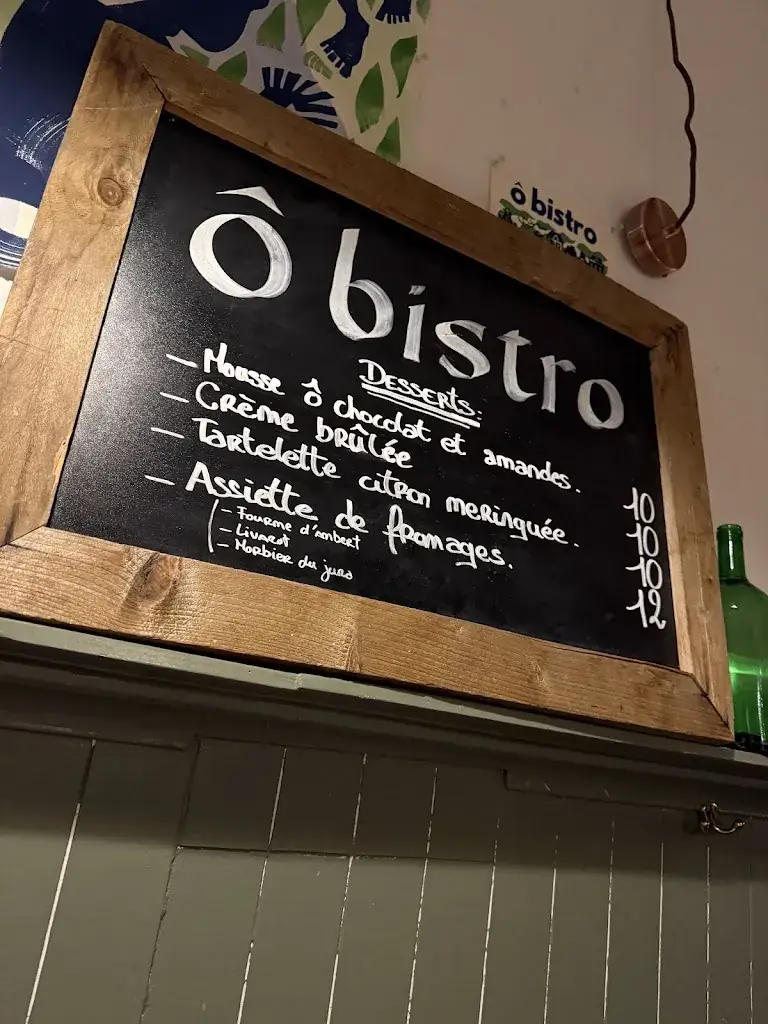 ô bistro
Ô bistro
DESSERTS:
- Mousse ô chocolat et amandes. 10
- Crème brûlée 10
- Tartelette citron meringuée. 10
- Assiette de fromages. 12
- Fourme d'ambert
- Livarot
- Morbier du jura